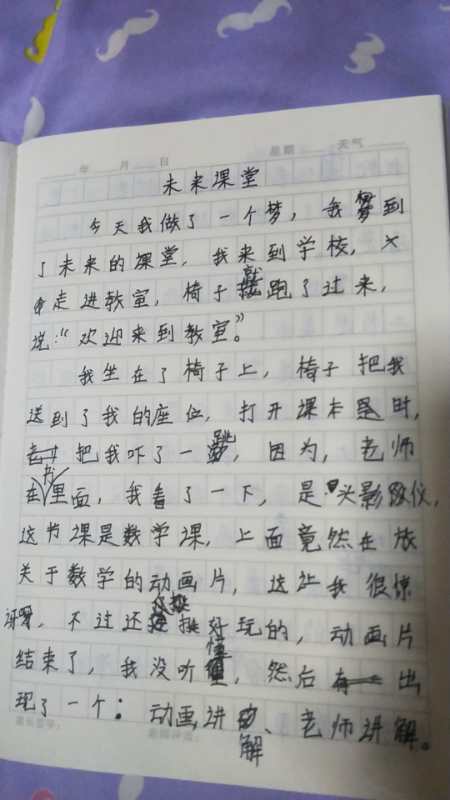 年 月 日 星期 天气
未来课堂
今天我做了一个梦，我梦到
了未来的课堂，我来到学校，
走进教室，椅子就跑了过来，
说：“欢迎来到教室。”
我坐在了椅子上，椅子把我
送到了我的座位，打开课本时，
把我吓了一跳，因为，老师
在书里面，我看了一下，是头影仪，
这节课是数学课，上面竟然在放
关于数学的动画片，这让我很惊
讶，不过还挺好玩的，动画片
结束了，我没听懂，然后出
现了一个：动画讲解、老师讲解。